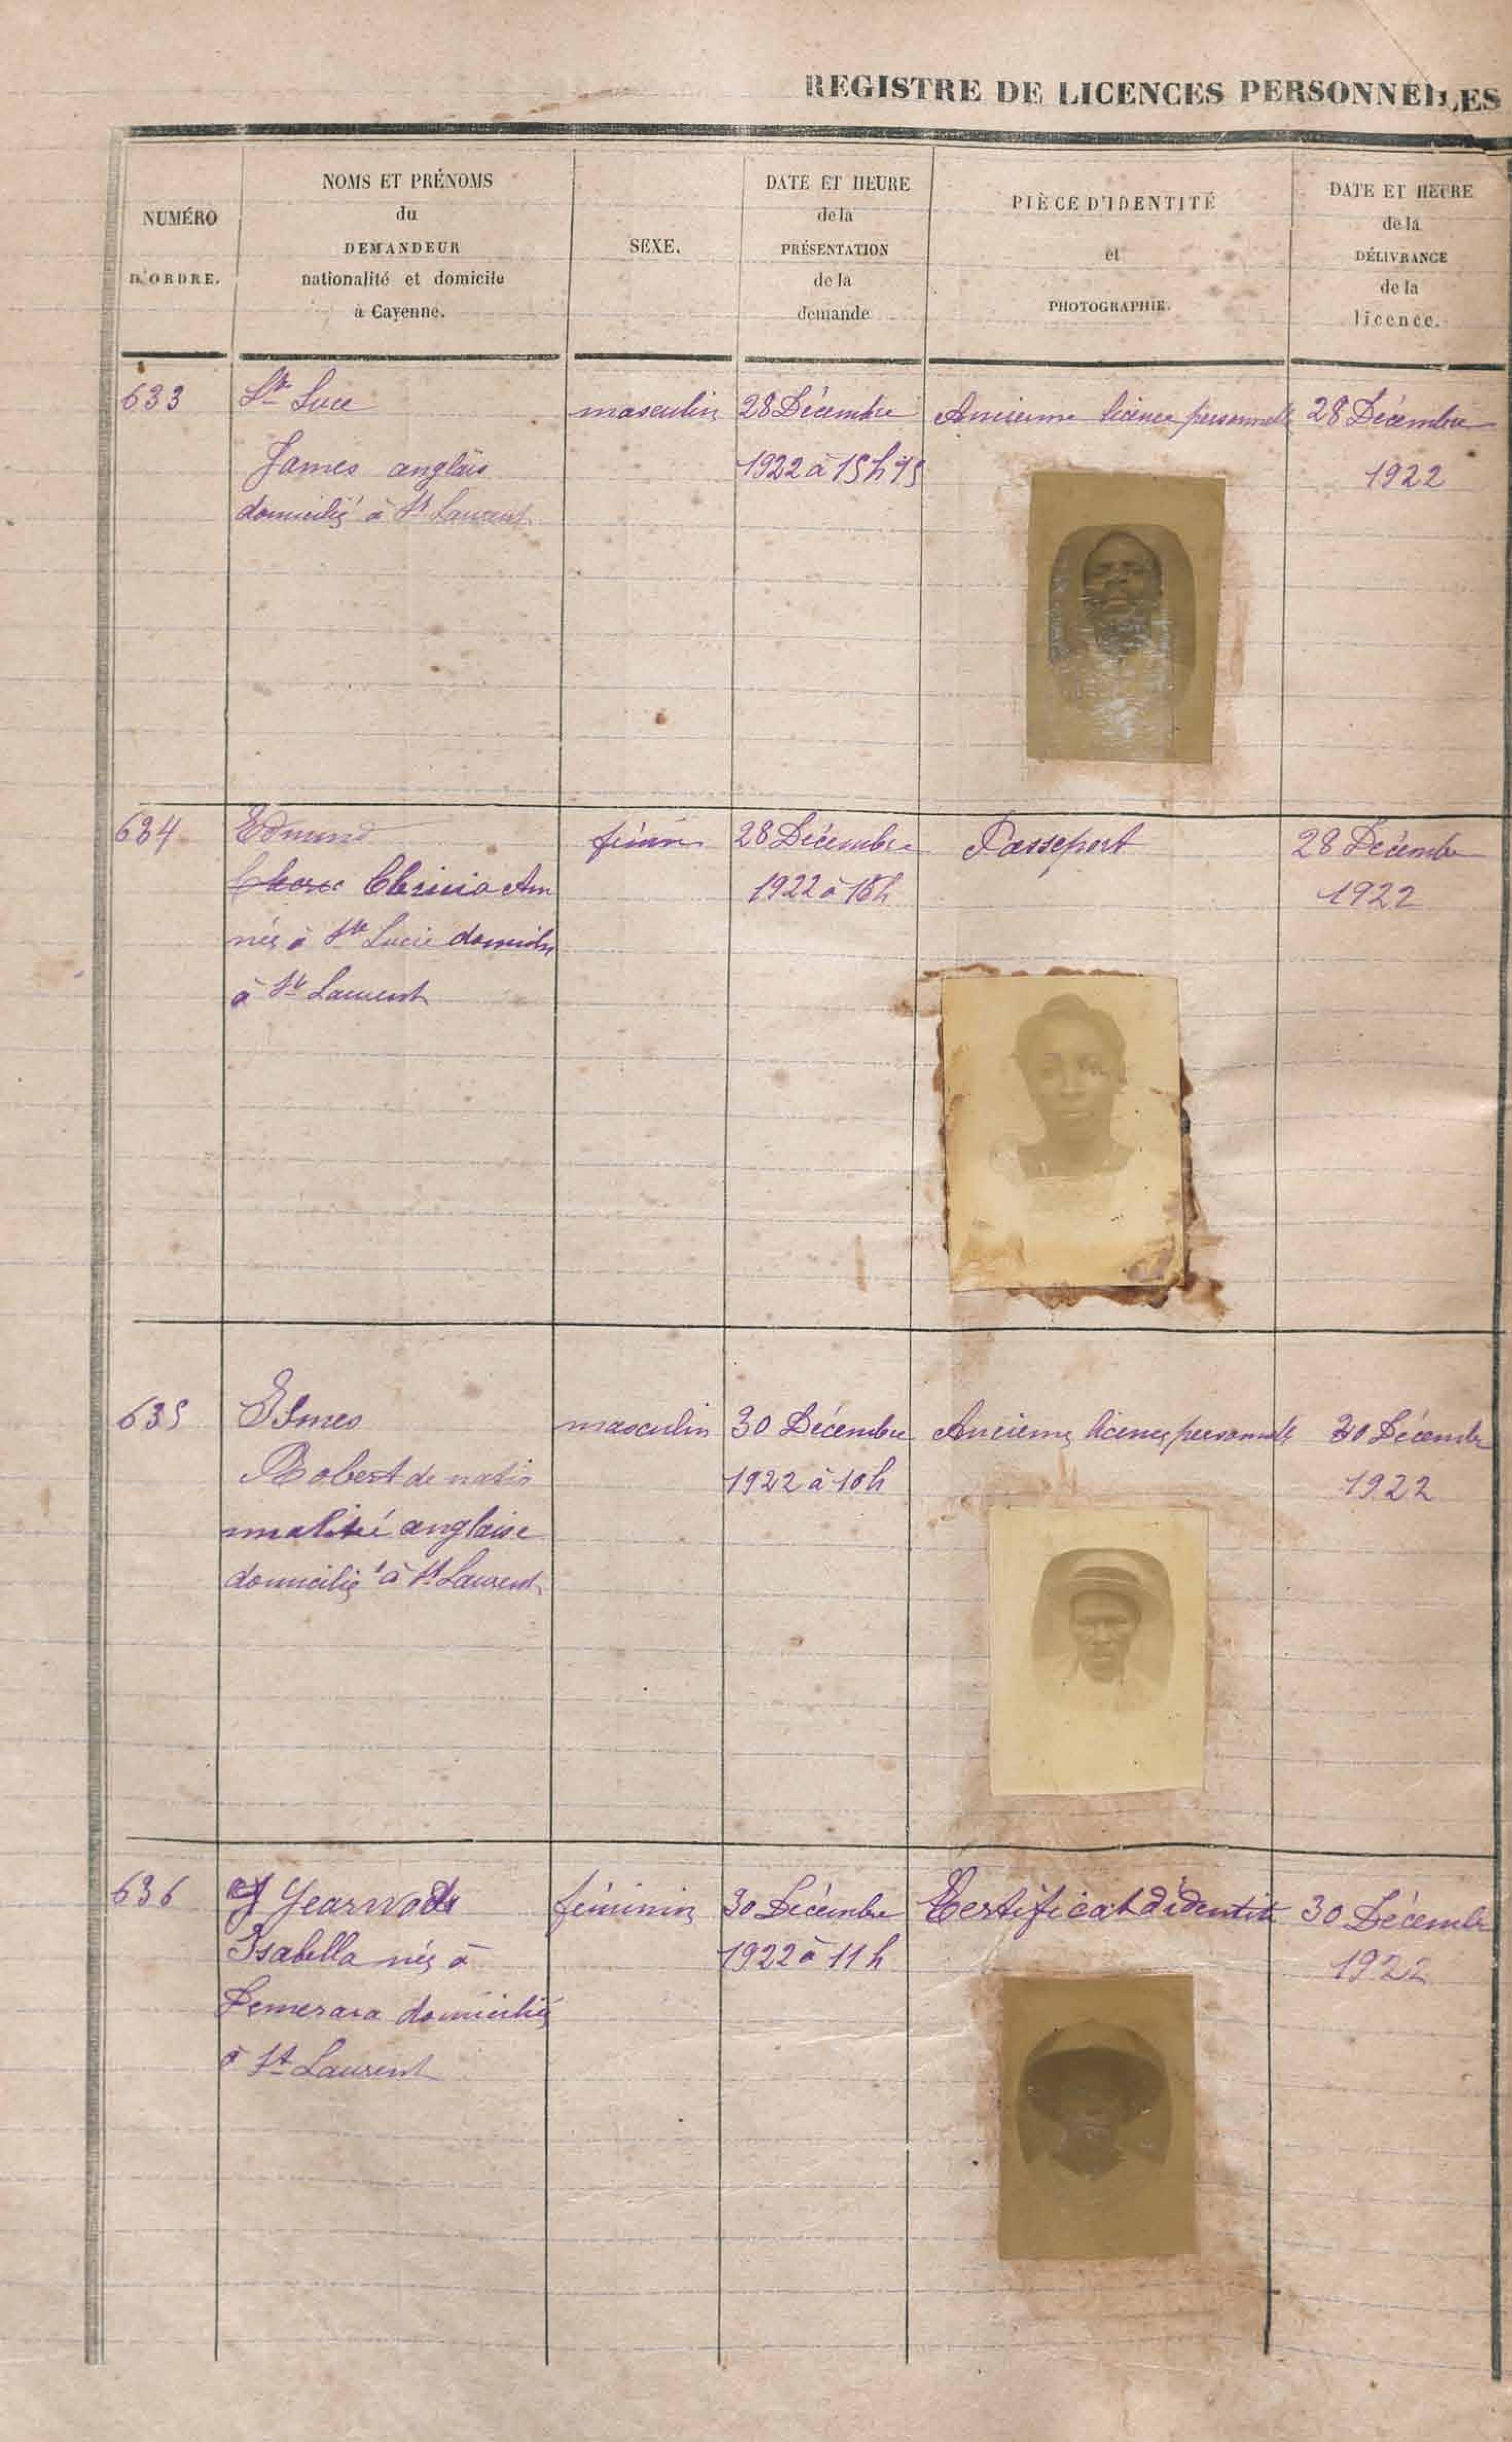 REGISTRE DE LICENCES PERSONNELLES
NUMÉRO
D'ORDRE.
NOMS ET PRÉNOMS
du
DEMANDEUR
nationalité et domicile
à Cayenne.
SEXE.
DATE ET HEURE
de la
PRÉSENTATION
de la
demande
PIÈCE D'IDENTITÉ
et
PHOTOGRAPHIE.
DATE ET HEURE
de la
DÉLIVRANCE
de la
licence.
633
Ste Luce
James anglais
domicilié à St Laurent
masculin
28 Décembre
1922 à 15h 45
Ancienne licence personnelle
28 Décembre
1922
634
Edmund
née à Ste Lucie
à St Laurent
28 Décembre
1922 à 16h
Passeport
28 Décembre
1922
635
Robert de natio
nnalité anglaise
domicilié à St Laurent
masculin
30 Décembre
1922 à 10h
Ancienne licence personnelle
30 Décembre
1922
636
Yearwods
Isabella née à
Demerara domiciliée
à St Laurent
féminin
30 Décembre
1922 à 11h
Certificat d'identité
30 Décembre
1922